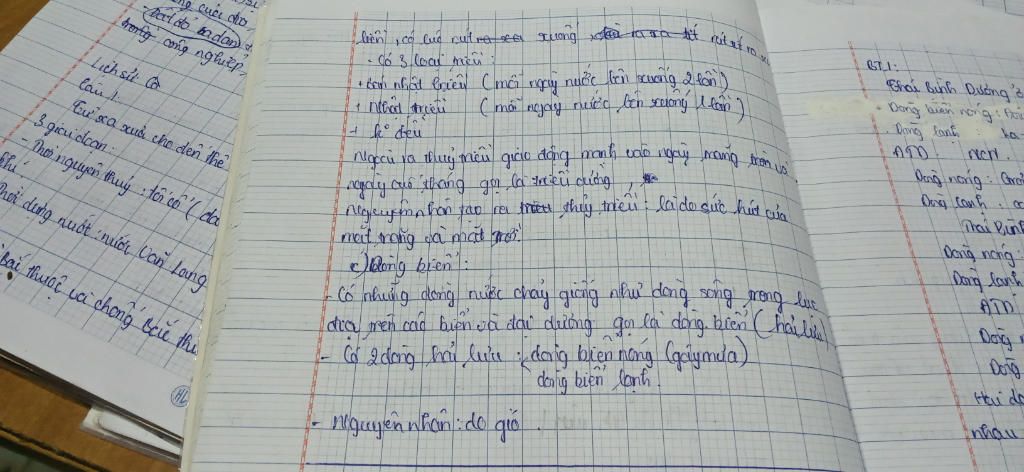 cuối dòng
trong công nghiệp
Lịch sử
Câu 1.
Từ xa xưa cho đến thế
3 giai đoạn:
- Thời nguyên thuỷ: tối cổ (
Thời dựng nước: nước Văn Lang
biển, có lúc rút xuống
- Có 3 loại triều:
+ bán nhật triều (mỗi ngày nước lên xuống 2 lần)
+ nhật triều (mỗi ngày nước lên xuống 1 lần)
+ k° đều
ngoài ra thuỷ triều giao động mạnh vào ngày trăng tròn và
ngày cuối tháng gọi là triều cường
nguyên nhân tạo ra thủy triều: là do sức hút của
mặt trăng và mặt trời.
c) Dòng biển:
- Có những dòng nước chảy giống như dòng sông trong lục
địa, trên các biển và đại dương gọi là dòng biển (hải lưu)
- Có 2 dòng hải lưu: dòng biển nóng (gây mưa)
dòng biển lạnh.
- nguyên nhân: do gió.
BT1:
Thái Bình Dương
Dòng biển nóng:
Dòng lạnh:
ATD
Dòng nóng:
Dòng lạnh.
Thái Bình
Dòng nóng:
Dòng lạnh
ATD
Dòng
Dòng
Hai
nhau